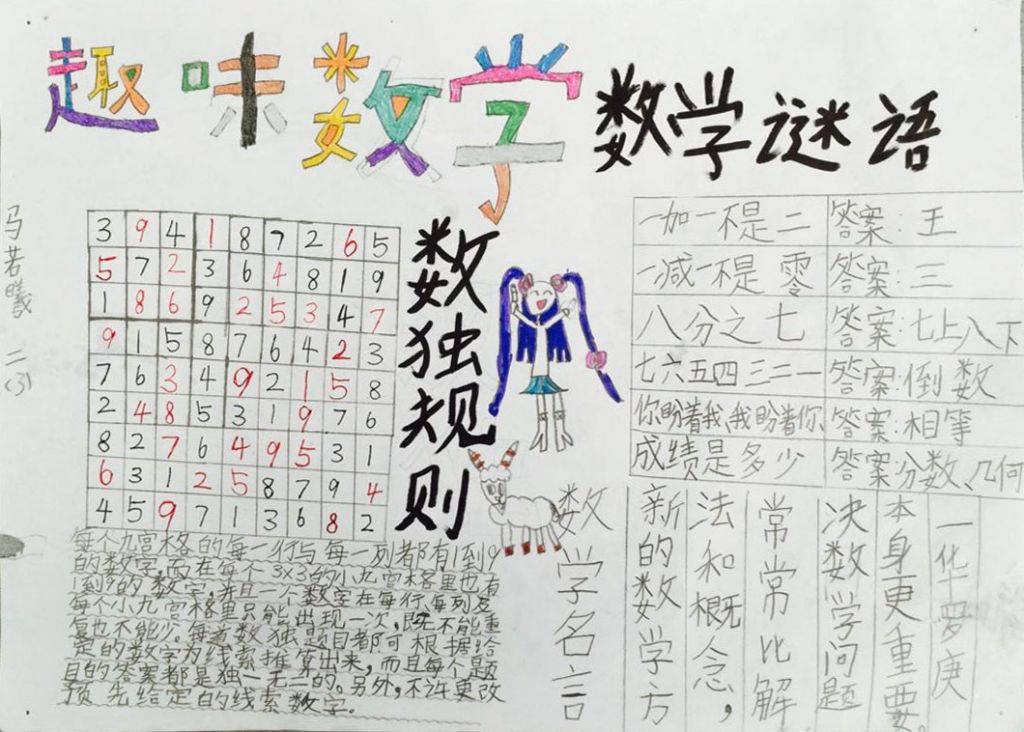 趣味数学
数学谜语
马若曦 二(3)
3 9 4 1 8 7 2 6 5
5 7 2 3 6 4 8 1 9
1 8 6 9 2 5 3 4 7
9 1 5 8 7 6 4 2 3
7 6 3 4 9 2 1 5 8
2 4 8 5 3 1 9 7 6
8 2 7 6 4 9 5 3 1
6 3 1 2 5 8 7 9 4
4 5 9 7 1 3 6 8 2
数独规则
每个九宫格的每一行与每一列都有1到9
的数字,而在每个3×3的小九宫格里也有
1到9的数字,并且一个数字在每行每列及
每个小九宫格里只能出现一次,既不能重
复也不能少。每道数独题目都可根据给
定的数字为线索推算出来,而且每个题
目的答案都是独一无二的。另外,不许更改
预先给定的线索数字。
一加一不是二 答案:王
一减一不是零 答案:三
八分之七 答案:七上八下
七六五四三二一 答案:倒数
你盼着我、我盼着你 答案:相等
成绩是多少 答案:分数、几何
数学名言
新的数学方
法和概念,
常常比解
决数学问题
本身更重要。
一华罗庚